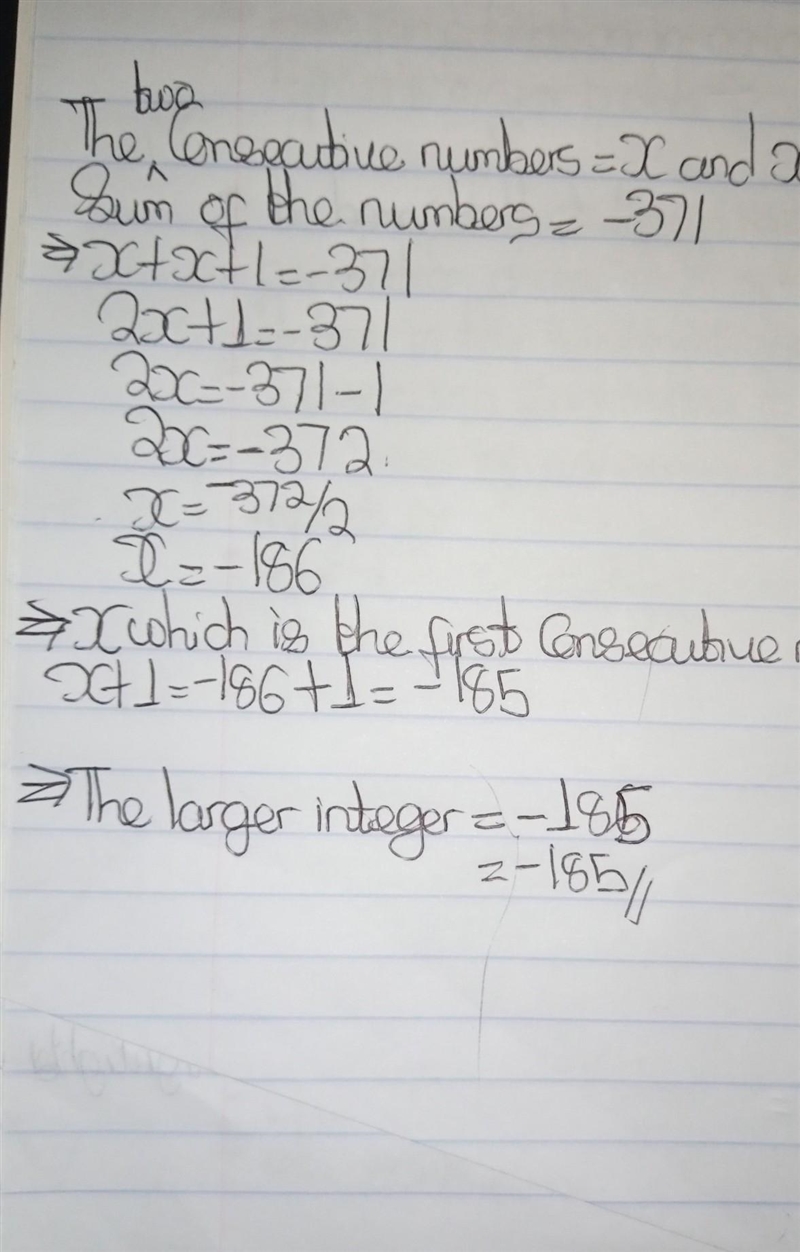 two
The ^ Consecutive numbers = x and x
Sum of the numbers = -371
⇒ x+x+1=-371
2x+1=-371
2x=-371-1
2x=-372.
x=-372/2
x=-186
⇒ x which is the first Consecutive
x+1=-186+1=-185
⇒ The larger integer = -185
=-185//